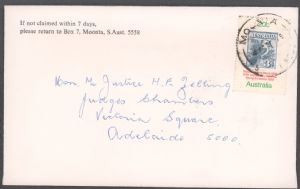 If not claimed within 7 days,
please return to Box 7, Moonta, S.Aust. 5558
MOONTA
Australia
Hon Mr Justice H.E. Zelling
Judges Chambers
Victoria Square
Adelaide 5000.